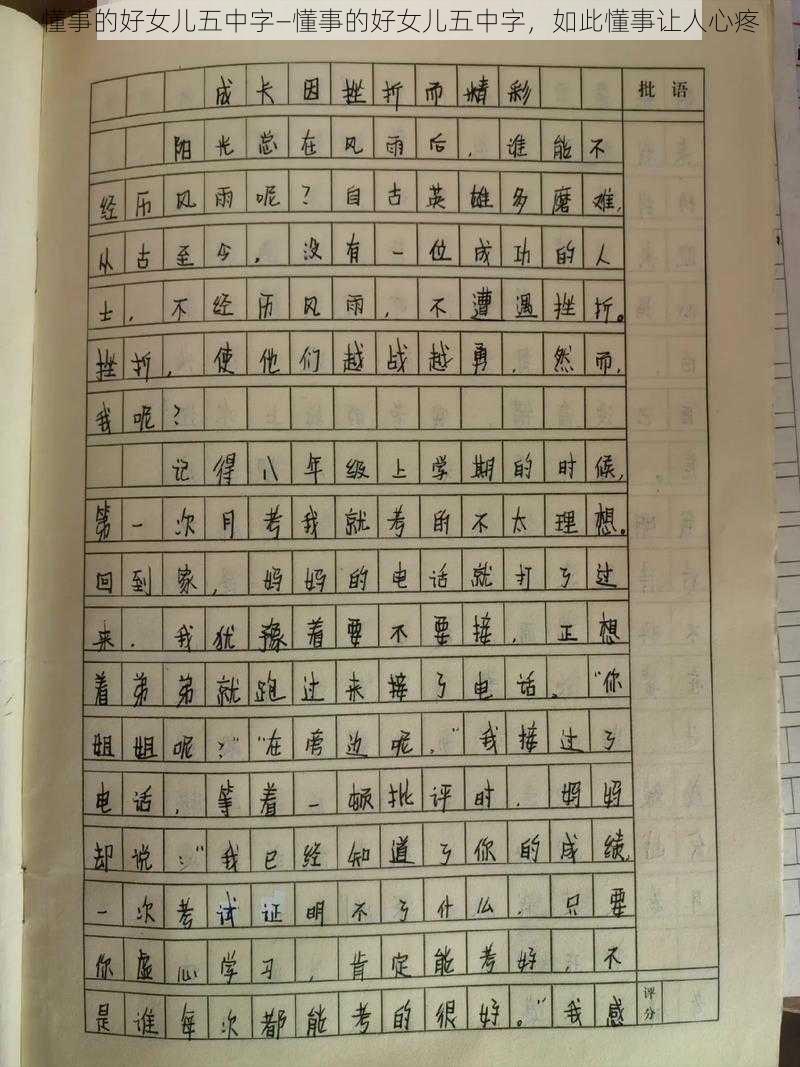 懂事的好女儿五中字—懂事的好女儿五中字，如此懂事让人心疼
成长因挫折而精彩
批语
阳光总在风雨后，谁能不
经历风雨呢？自古英雄多磨难，
从古至今，没有一位成功的人
士，不经历风雨，不遭遇挫折。
挫折，使他们越战越勇，然而，
我呢？
记得八年级上学期的时候，
第一次月考我就考的不太理想。
回到家，妈妈的电话就打了过
来，我犹豫着要不要接，正想
着弟弟就跑过来接了电话。“你
姐姐呢？”“在旁边呢，”我接过了
电话，等着一顿批评时，妈妈
却说：“我已经知道了你的成绩，
一次考试证明不了什么，只要
你虚心学习，肯定能考好，不
是谁每次都能考的很好。”我感
评分